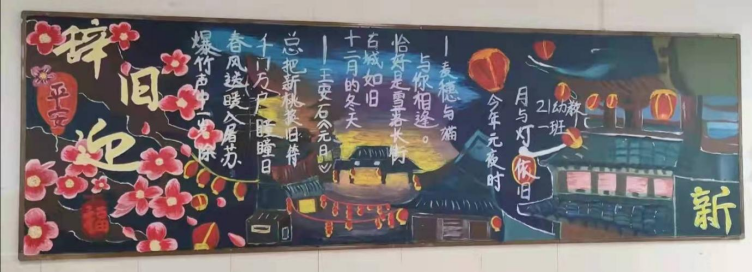 辞旧迎
平安
福
爆竹声中一岁除
春风送暖入屠苏
千门万户瞳瞳日
总把新桃换旧符
—王安石《元日》
十二月的冬天
古城如旧
恰好是雪落长街
与你相逢。
—麦穗与猫
今年元夜时
月与灯依旧
21幼教
一班
新